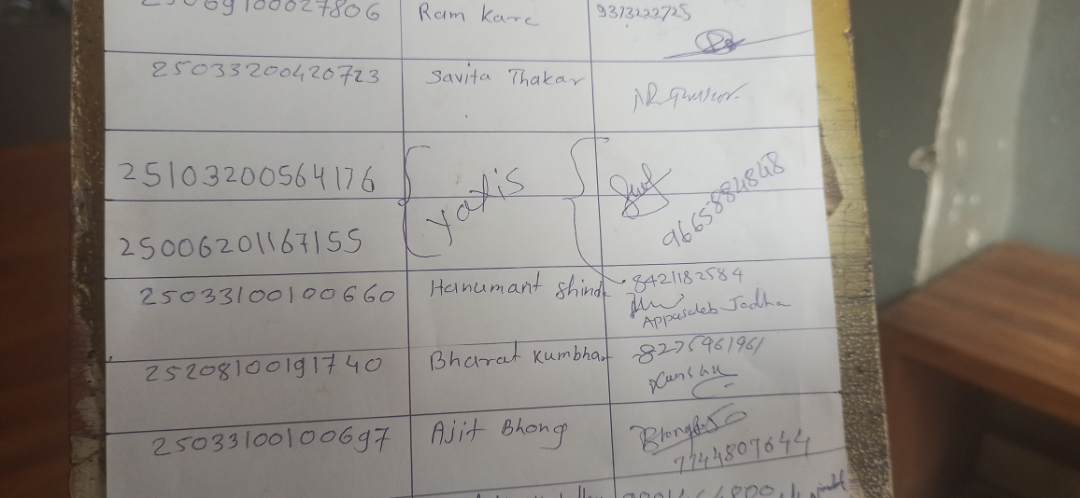 25069100027806 Ram Kare 9373222725
25033200420723 Savita Thakar
25103200564176
yatis 9665884848
25006201167155
25033100100660 Hanumant Shinde 8421182584
Appasaheb Jadha
25208100191740 Bharat Kumbhar 8275961961
25033100100697 Ajit Bhong
7744807644